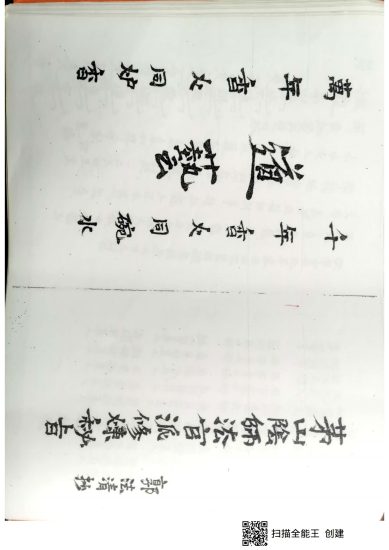 萬年香火同炉香
道藝
千年香火同碗水
茅山陰師法官派修煉秘旨
郭法清抄
扫描全能王 创建